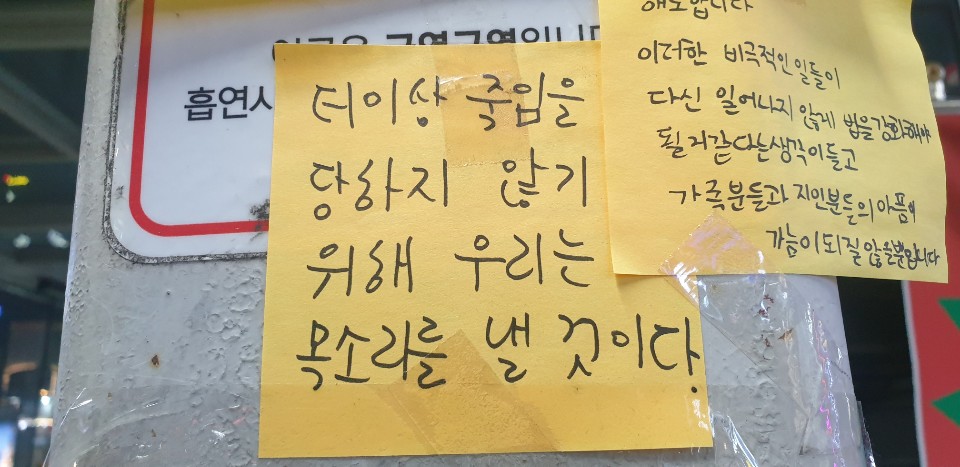 금연구역입니다
흡연시
더이상 죽임을
당하지 않기
위해 우리는
목소리를 낼 것이다.
애도합니다
이러한 비극적인 일들이
다신 일어나지 않게 법을 강화해야
될 거 같다는 생각이 들고
가족분들과 지인분들의 아픔이
가늠이 되질 않을 뿐입니다